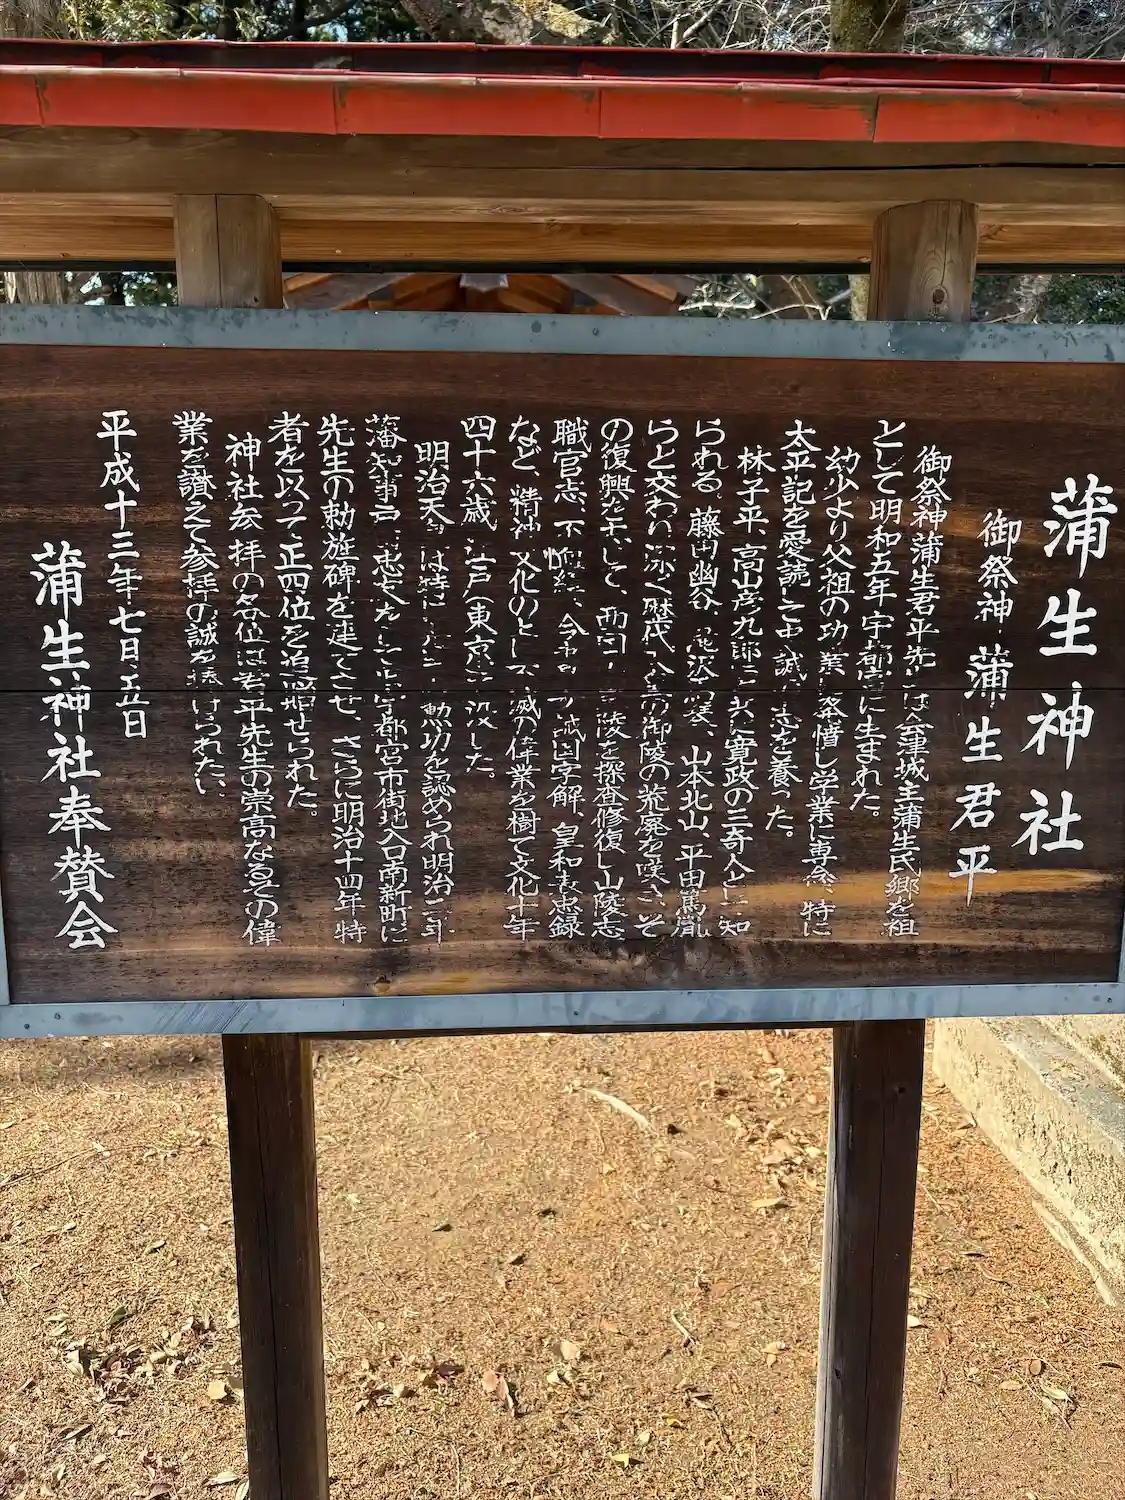 蒲生神社
御祭神 蒲生君平
御祭神蒲生君平先は会津城主蒲生氏郷を祖
として明和五年宇都宮に生まれた。
幼少より父祖の功業 発憤し学業に専念、特に
太平記を愛読して忠誠 志を養った。
林子平、高山彦九郎と共に寛政の三奇人と 知
られる。藤田幽谷 滝沢 、山本北山、平田篤胤
らと交わり深く歴代 の御陵の荒廃を嘆き、そ
の復興を志して、 陵を探査修復し山陵志
職官志、不恤緯、今書 国字解、皇和表忠録
など、精神文化の 不滅の偉業を樹て文化十年
四十六歳 江戸(東京)に没した。
明治天 は特に 勲功を認められ明治二年
藩知事戸 忠友 宇都宮市街地入口南新町に
先生の勅旌碑を建てさせ、さらに明治十四年特
者を以って正四位を追贈せられた。
神社参拝の各位は君平先生の崇高なるその偉
業を讃えて参拝の誠を捧げられたい、
平成十三年七月 五日
蒲生神社奉賛会